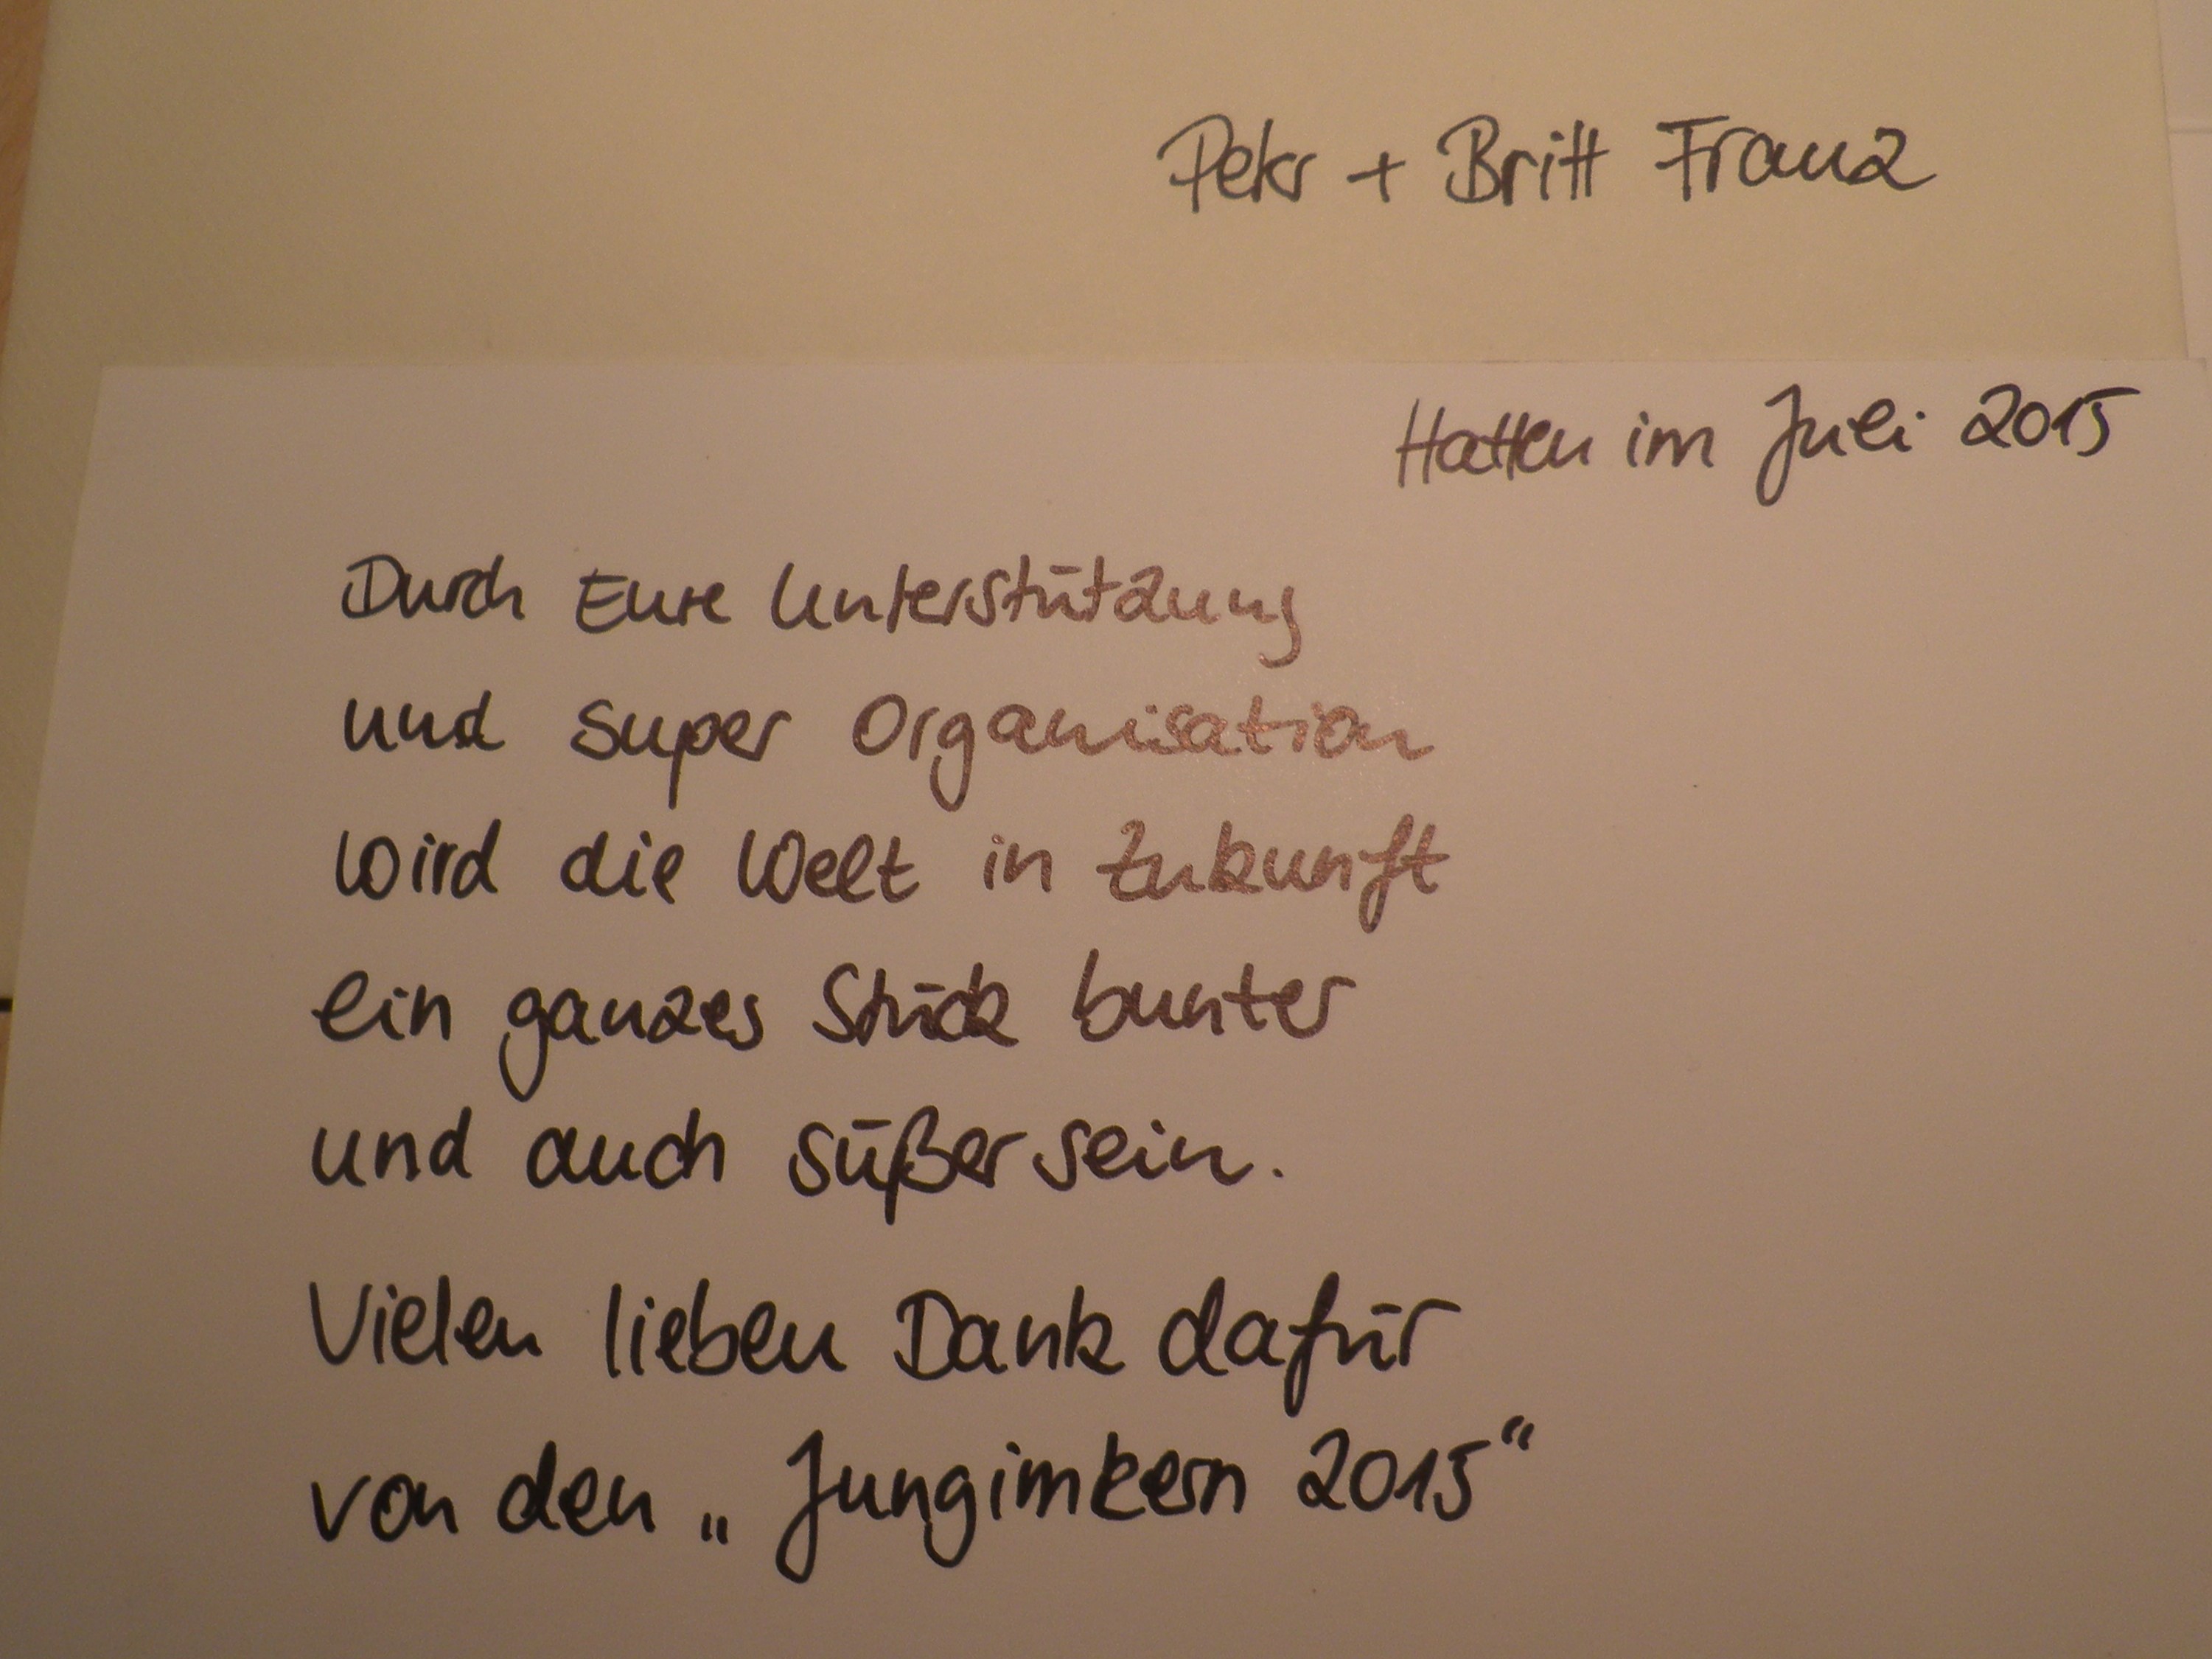 Peter + Britt Franz
Hatten im Juli 2015
Durch Eure Unterstützung
und super Organisation
wird die Welt in Zukunft
ein ganzes Stück bunter
und auch süßer sein.
Vielen lieben Dank dafür
von den „Jungimkern 2015“